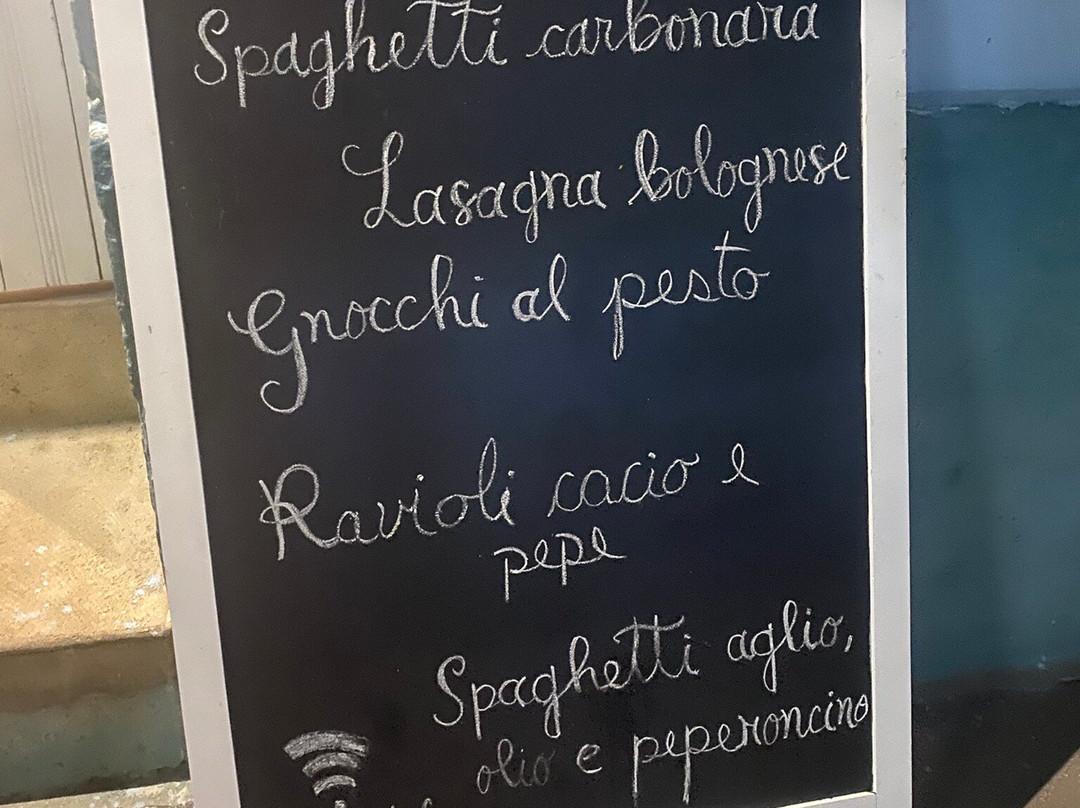 Spaghetti carbonara
Lasagna bolognese
Gnocchi al pesto
Ravioli cacio e
pepe
Spaghetti aglio,
olio e peperoncino